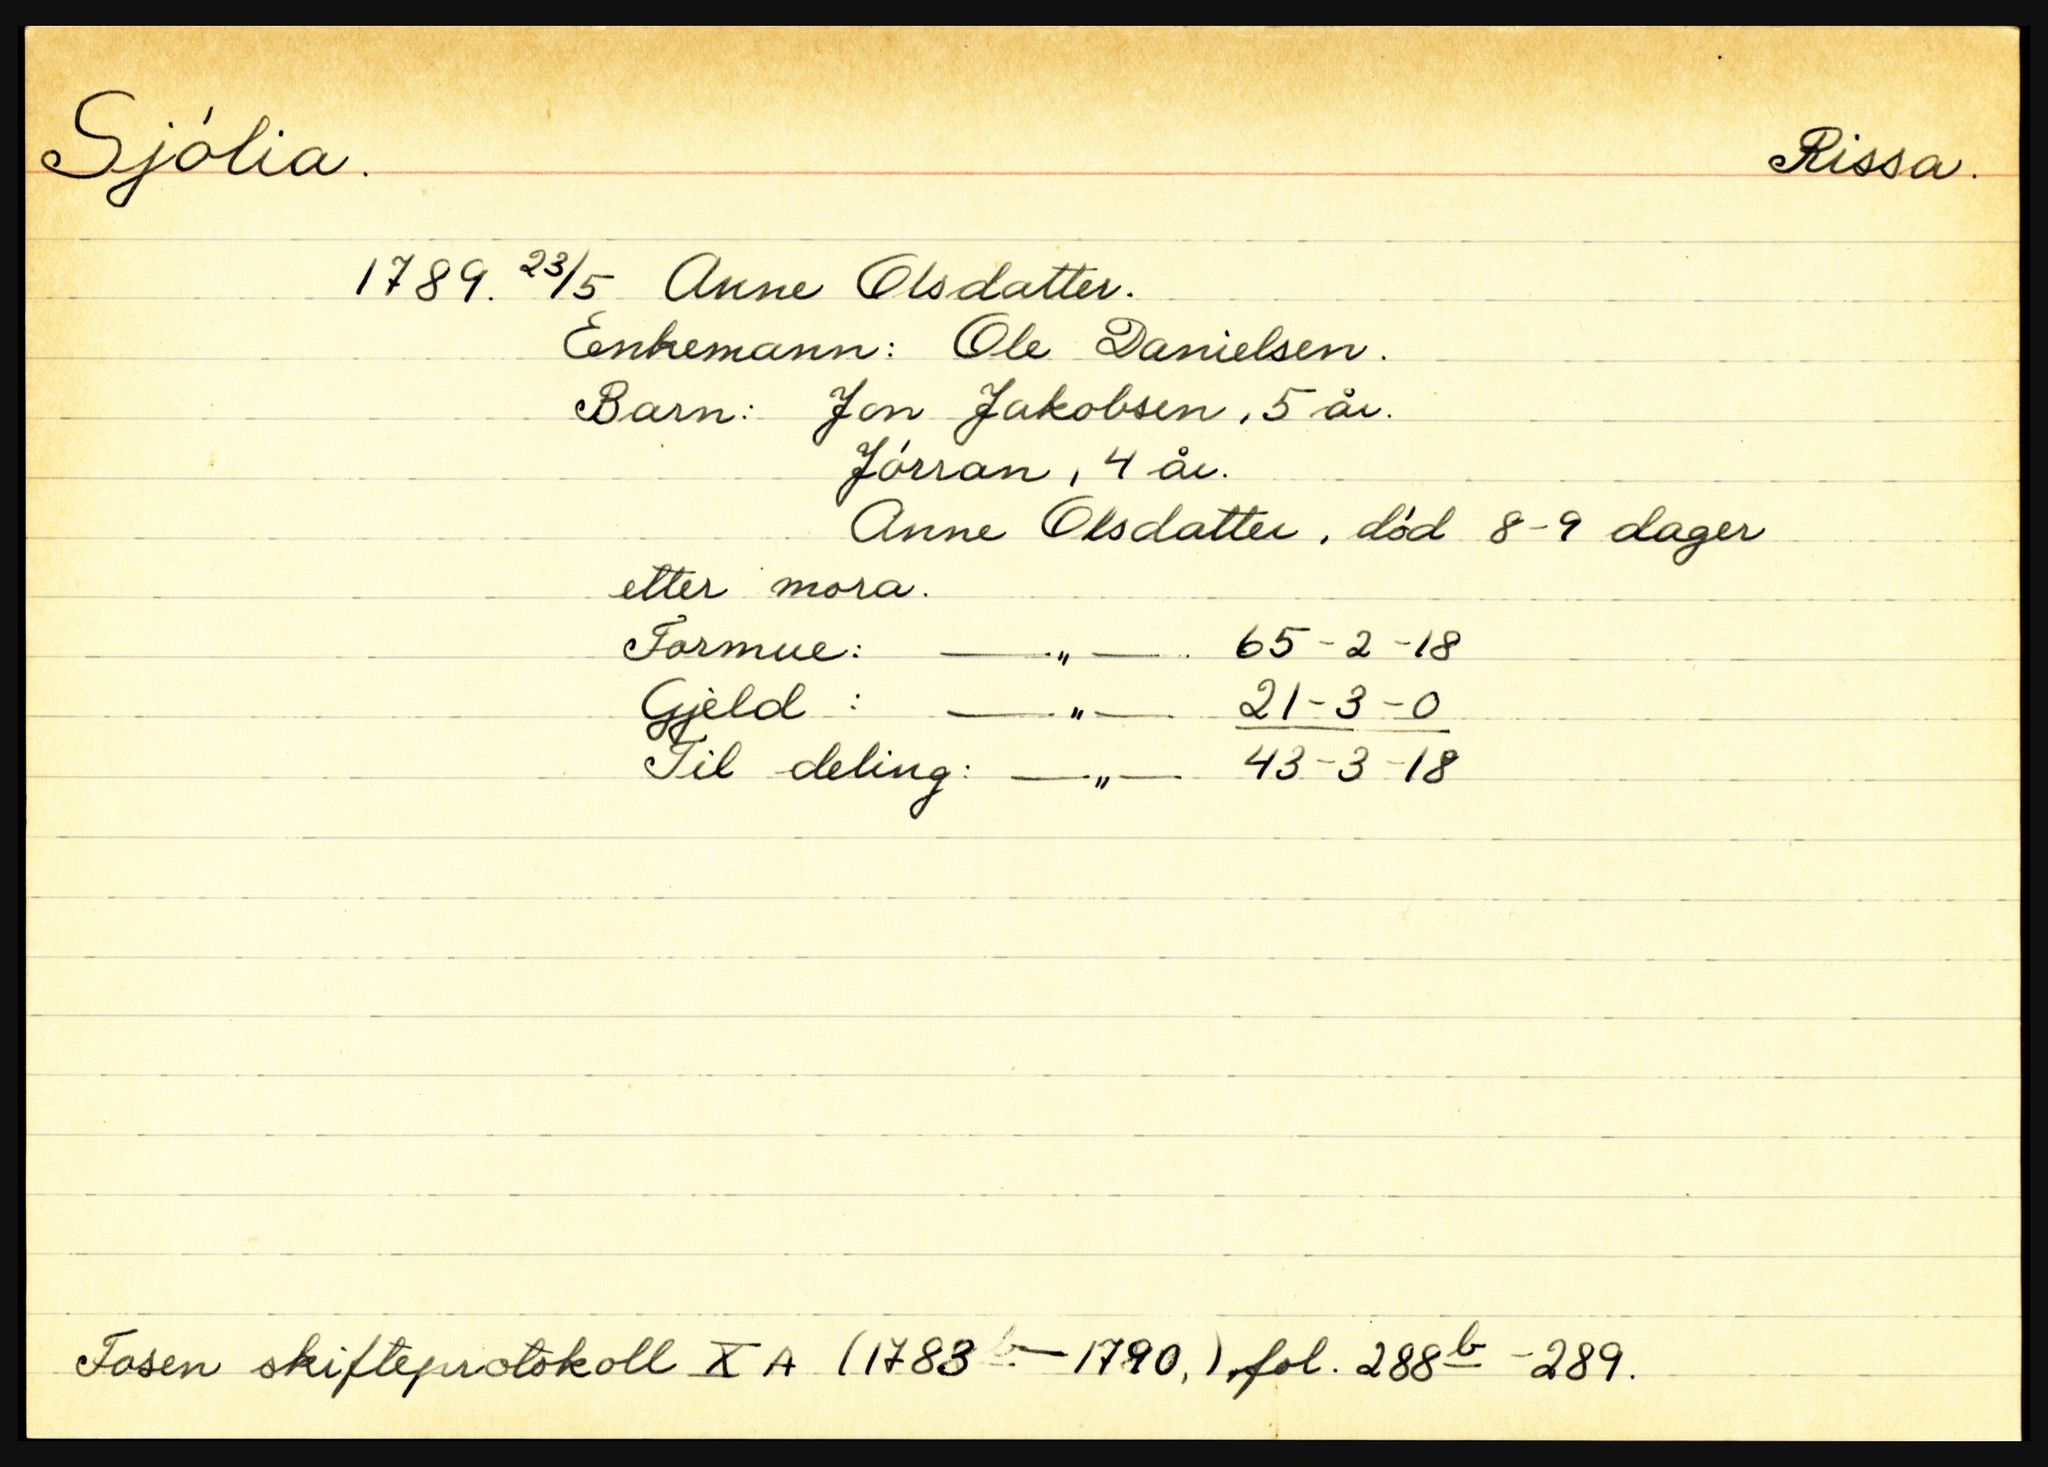 Sjólia. Rissa.
1789. 23/5 Anne Olsdatter.
Enkemann: Ole Danielsen.
Barn: Jon Jakobsen, 5 år.
Jórran, 4 år.
Anne Olsdatter, død 8-9 dager
etter mora.
Formue: —„— 65-2-18
Gjeld : —„— 21-3-0
Til deling: —„— 43-3-18
Fosen skifteprotokoll X A (1783b-1790,) fol. 288b-289.